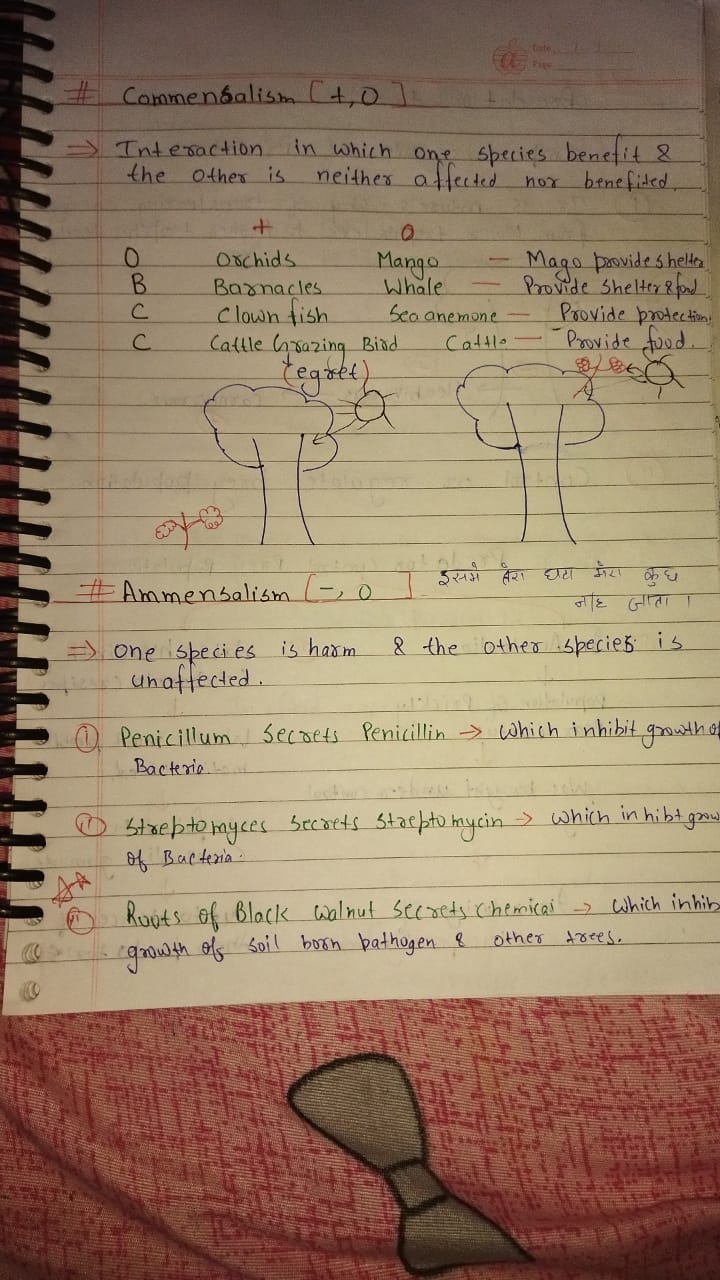 Date
Page
# Commensalism [+, 0]
⇒ Interaction in which one species benefit &
the other is neither affected nor benefited.
+ 0
O Orchids Mango — Mago provide shelter
B Barnacles Whale — Provide shelter & food
C Clown fish Sea anemone — Provide protection
C Cattle Grazing Bird Cattle — Provide food.
(egret)
# Ammensalism [-, 0]
इसमे तेरा घटा मेरा कुछ
नहि जाता।
⇒ One species is harm & the other species is
unaffected.
(i) Penicillum Secrets Penicillin → which inhibit growth of
Bacteria.
(ii) Streptomyces Secrets Streptomycin → which inhibt grow
of Bacteria.
(iii) Roots of Black walnut Secrets Chemical → which inhib
growth of soil born pathogen & other trees.